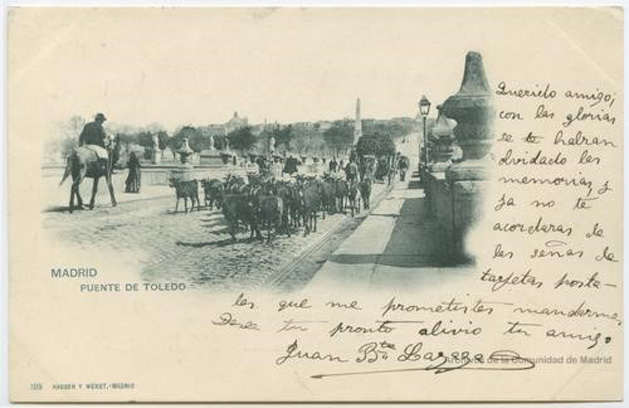 Querido amigo;
con las glorias
se te habran
olvidado las
memorias, y
ya no te
acordaras de
las señas de
tarjetas posta-
les que me prometistes mandarme
Desea tu pronto alivio tu amigo
Juan Bta
MADRID
PUENTE DE TOLEDO
109 HAUSER Y MENET.-MADRID
Archivos de la Comunidad de Madrid